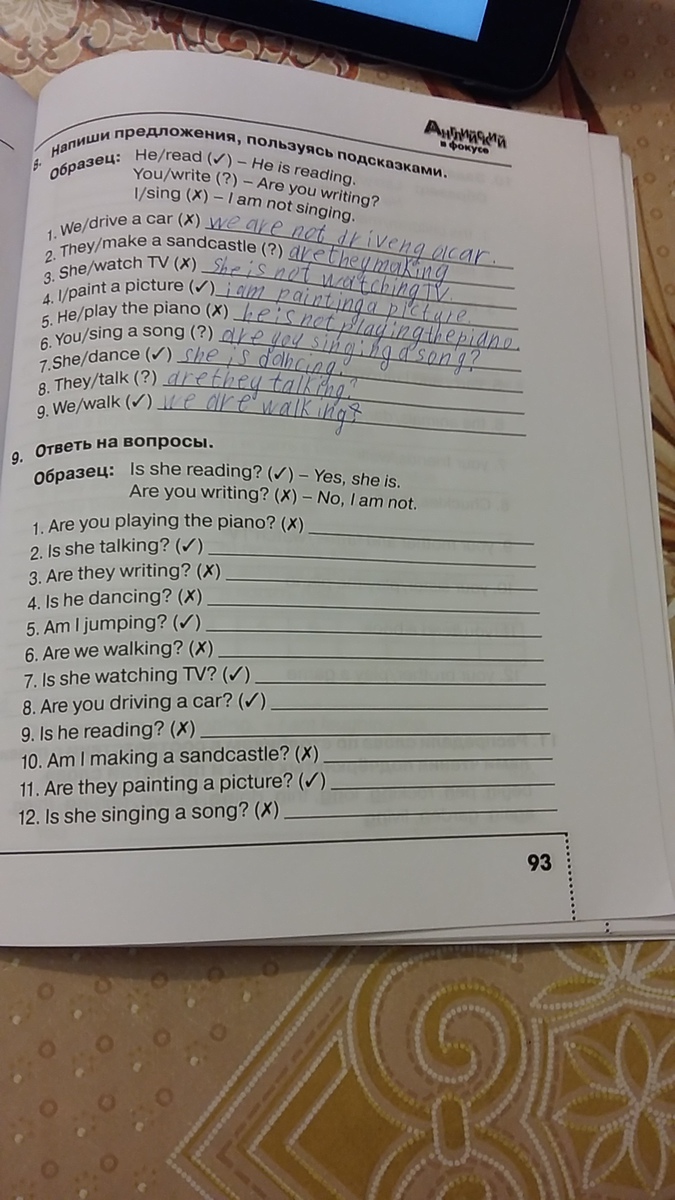 Английский
в фокусе
8. Напиши предложения, пользуясь подсказками.
Образец: He/read (✓) – He is reading.
You/write (?) – Are you writing?
I/sing (✗) – I am not singing.
1. We/drive a car (✗) we are not driveng a car.
2. They/make a sandcastle (?) are they making
3. She/watch TV (✗) She is not watching TV.
4. I/paint a picture (✓) i am painting a picture
5. He/play the piano (✗) he is not playing the piano.
6. You/sing a song (?) are you singing a song?
7.She/dance (✓) she is dancing.
8. They/talk (?) are they talking?
9. We/walk (✓) we are walking?
9. Ответь на вопросы.
Образец: Is she reading? (✓) – Yes, she is.
Are you writing? (✗) – No, I am not.
1. Are you playing the piano? (✗)
2. Is she talking? (✓)
3. Are they writing? (✗)
4. Is he dancing? (✗)
5. Am I jumping? (✓)
6. Are we walking? (✗)
7. Is she watching TV? (✓)
8. Are you driving a car? (✓)
9. Is he reading? (✗)
10. Am I making a sandcastle? (✗)
11. Are they painting a picture? (✓)
12. Is she singing a song? (✗)
93